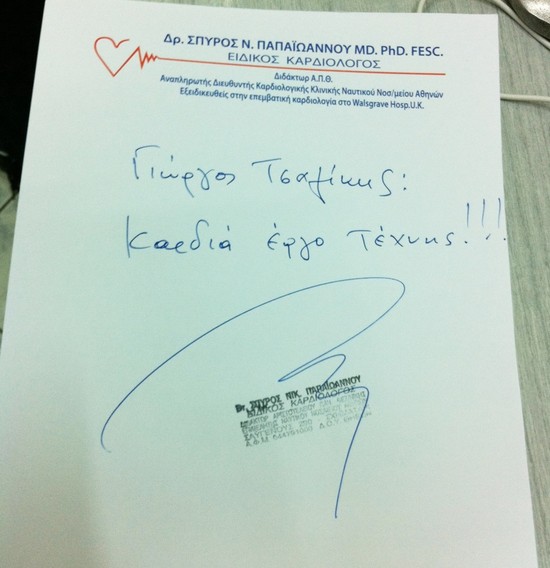 Δρ. ΣΠΥΡΟΣ Ν. ΠΑΠΑΪΩΑΝΝΟΥ MD. PhD. FESC.
ΕΙΔΙΚΟΣ ΚΑΡΔΙΟΛΟΓΟΣ
Διδάκτωρ Α.Π.Θ.
Αναπληρωτής Διευθυντής Καρδιολογικής Κλινικής Ναυτικού Νοσ/μείου Αθηνών
Εξειδικευθείς στην επεμβατική καρδιολογία στο Walsgrave Hosp.U.K.
Γιώργος Τσαλίκης:
Καρδιά έργο τέχνης!!!
Dr. ΣΠΥΡΟΣ ΝΙΚ. ΠΑΠΑΪΩΑΝΝΟΥ
ΕΙΔΙΚΟΣ ΚΑΡΔΙΟΛΟΓΟΣ